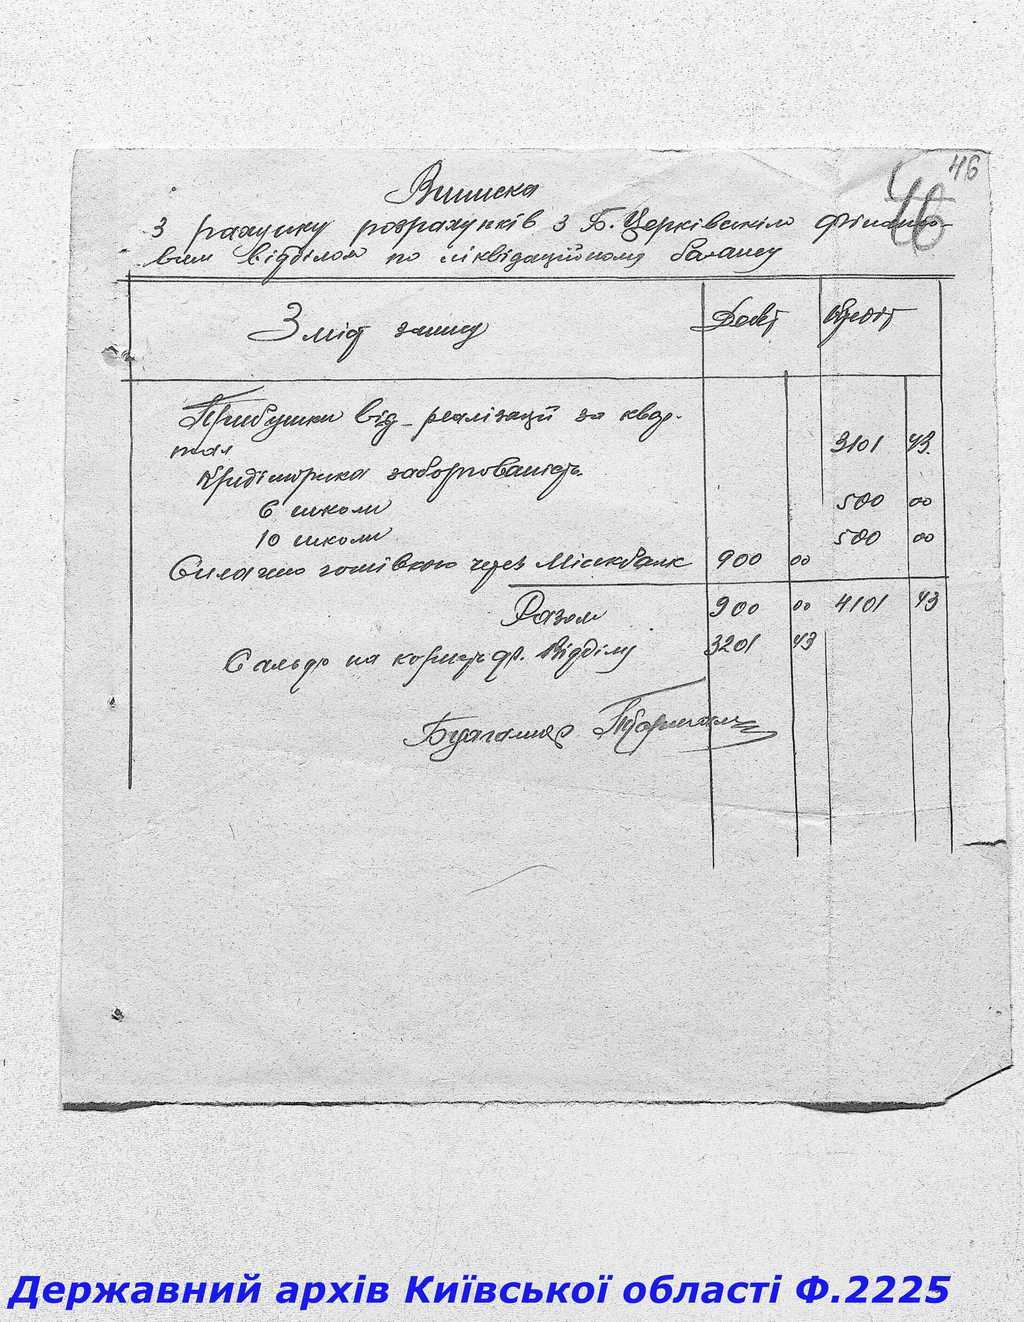 46
46
Виписка
З рахунку розрахунків з Б. Церківським фінансо-
вим відділом по ліквідаційному балансу
Зміст запису Дебет Кредит
Прибутки від реалізації за квар-
тал 3101 43
Кредіторська заборгованість
6 школи 500 00
10 школи 500 00
Сплачено готівкою через Міськбанк 900 00
Разом 900 00 4101 43
Сальдо на користь ф. Відділу 3201 43
Бухгалтер
Державний архів Київської області Ф.2225